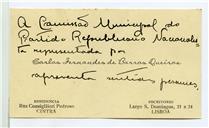 A Comissão Municipal do
Partido Republicano Nacionalista
representada por
Carlos Fernandes de Barros Queiroz
apresenta sentidos pesames.
RESIDENCIA
Rua Consiglieri Pedroso
CINTRA
ESCRITORIO
Largo S. Domingos, 21 a 24
LISBOA